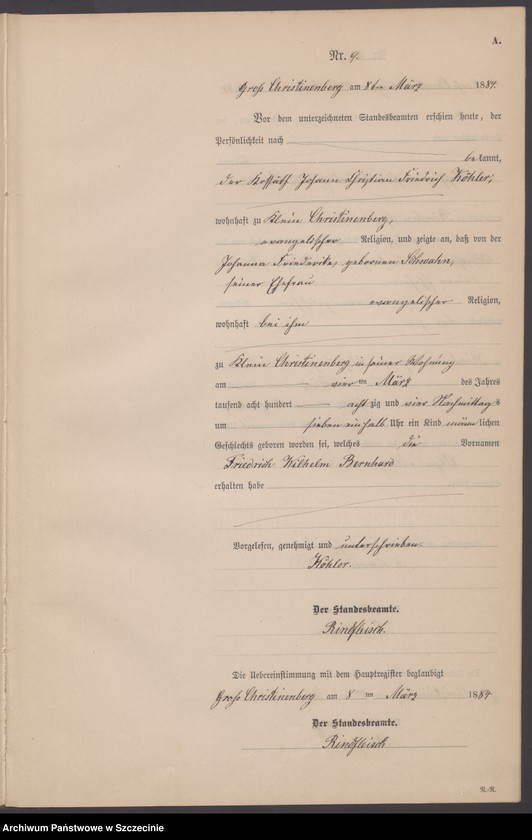 A.
Nr. 9.
Groß Christinenberg am 8ten März 1884.
Vor dem unterzeichneten Standesbeamten erschien heute, der
Persönlichkeit nach
bekannt,
der Kossäth Johann Christian Friedrich Köhler,
wohnhaft zu Klein Christinenberg,
evangelischer Religion, und zeigte an, daß von der
Johanna Friederike, gebornen Schwahn,
seiner Ehefrau
evangelischer Religion,
wohnhaft bei ihm
zu Klein Christinenberg in seiner Wohnung
am vier ten März des Jahres
tausend acht hundert acht zig und vier Nachmittags
um sieben einhalb Uhr ein Kind männlichen
Geschlechts geboren worden sei, welches die Vornamen
Friedrich Wilhelm Bernhard
erhalten habe
Vorgelesen, genehmigt und unterschrieben.
Köhler.
Der Standesbeamte.
Rindfleisch.
Die Uebereinstimmung mit dem Hauptregister beglaubigt
Groß Christinenberg am 8 ten März 1884
Der Standesbeamte.
Rindfleisch
R.-R.
Archiwum Państwowe w Szczecinie